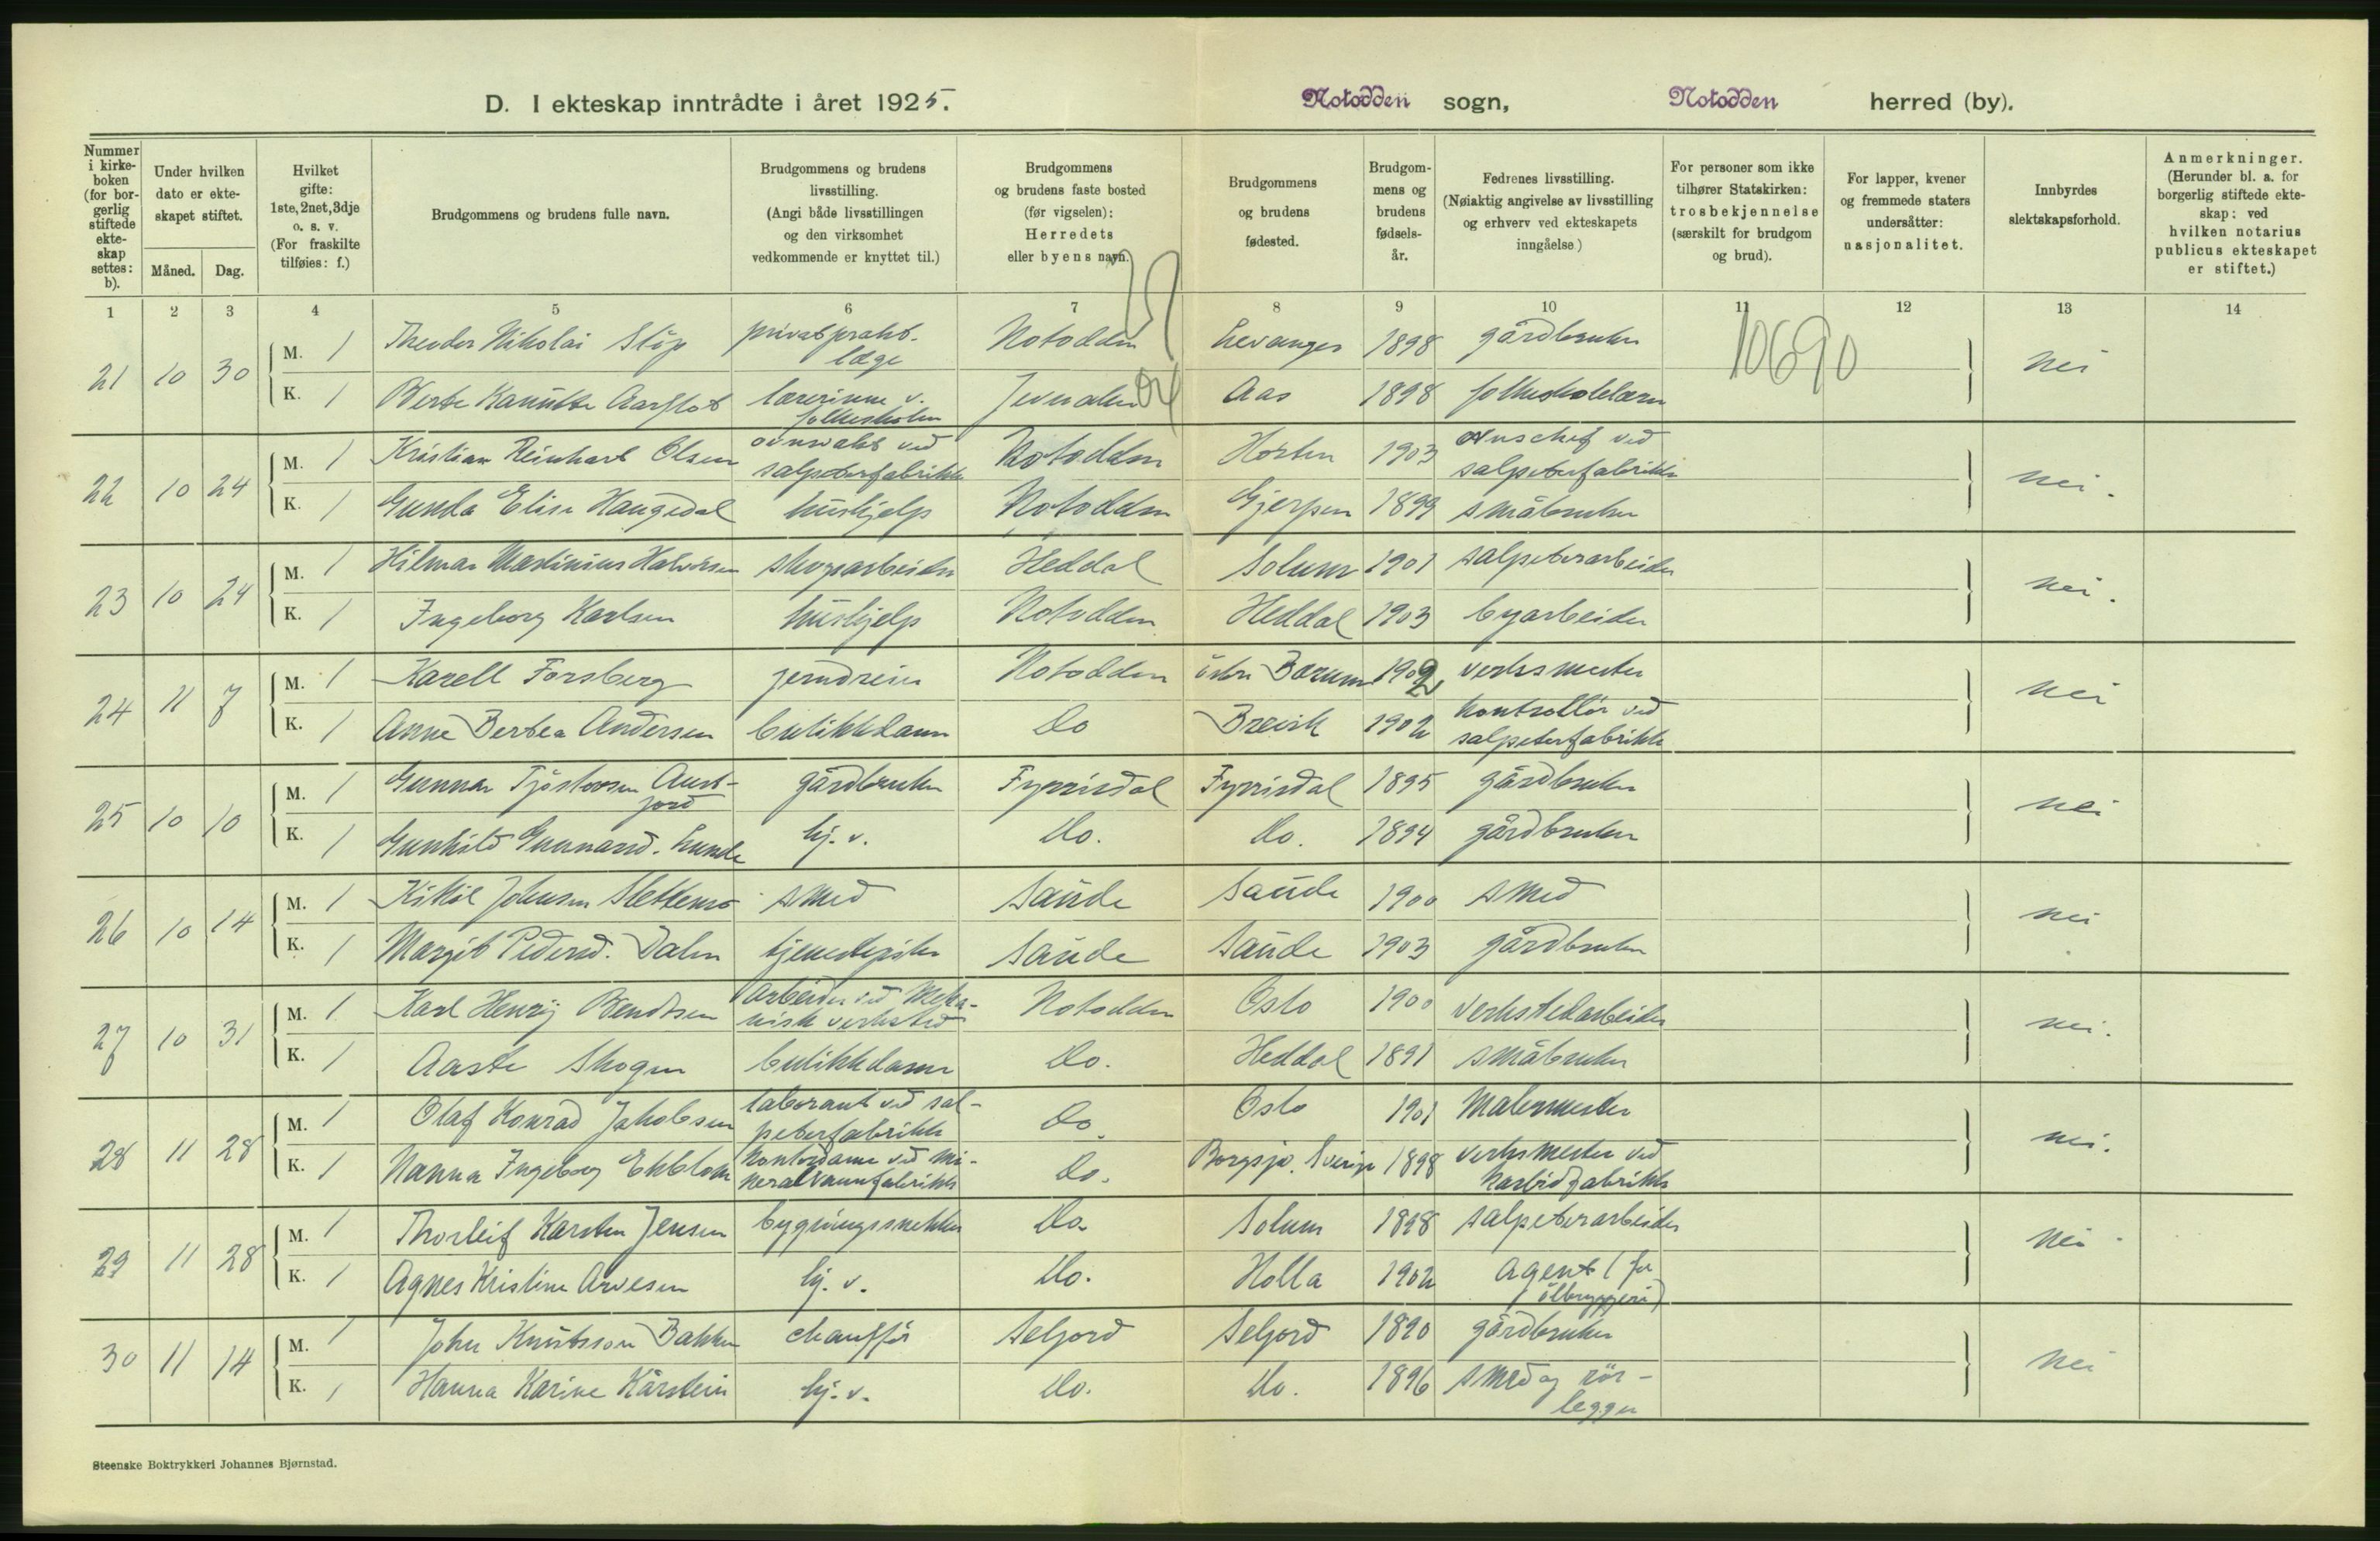 D. I ekteskap inntrådte i året 1925. Notodden sogn, Notodden herred (by).
Nummer i kirke-boken (for bor-gerlig stiftede ekte-skap settes: b).
Under hvilken dato er ekte-skapet stiftet.
Måned. Dag.
Hvilket gifte: 1ste, 2net, 3dje o. s. v. (For fraskilte tilføies: f.)
Brudgommens og brudens fulle navn.
Brudgommens og brudens livsstilling. (Angi både livsstillingen og den virksomhet vedkommende er knyttet til.)
Brudgommens og brudens faste bosted (før vigselen): Herredets eller byens navn.
Brudgommens og brudens fødested.
Brudgom-mens og brudens fødsels-år.
Fedrenes livsstilling. (Nøiaktig angivelse av livsstilling og erhverv ved ekteskapets inngåelse)
For personer som ikke tilhører Statskirken: trosbekjennelse (særskilt for brudgom og brud).
For lapper, kvener og fremmede staters undersåtter: nasjonalitet.
Innbyrdes slektskapsforhold.
Anmerkninger. (Herunder bl. a. for borgerlig stiftede ekte-skap: ved hvilken notarius publicus ekteskapet er stiftet.)
1 2 3 4 5 6 7 8 9 10 11 12 13 14
10690
21 10 30 M. 1 Theodor Nikolai Støp privatprakt. læge Notodden Levanger 1898 gårdbruker nei
K. 1 Berte Kanutte Aarflot lærerinne v. folkeskolen Jevnaker Aas 1898 folkeskolelærer
22 10 24 M. 1 Kristian Reinhart Olsen ovnsvakt ved salpeterfabrikk Notodden Horten 1903 ovnschef ved salpeterfabrikk nei.
K. 1 Gunda Elise Haugedal hushjelp Notodden Gjerpen 1899 småbruker
23 10 24 M. 1 Hilmar Martinius Halvorsen skogsarbeider Heddal Solum 1901 salpeterarbeider nei.
K. 1 Ingeborg Karlsen hushjelp Notodden Heddal 1903 byarbeider
24 11 7 M. 1 Karell Forsberg jerndreier Notodden östre Bærum 1902 verksmester nei
K. 1 Anne Bertea Andersen butikkdame Do Brevik 1902 kontrollør ved salpeterfabrikk
25 10 10 M. 1 Gunnar Tjöstovsen Aust-jord gårdbruker Fyrrisdal Fyrrisdal 1895 gårdbruker nei
K. 1 Gunhild Gunnarsd. Lunde hj. v. Do. Do. 1894 gårdbruker
26 10 14 M. 1 Kittil Johnsen Slettemo smed Saude Saude 1900 smed nei
K. 1 Margit Pedersd. Dalen tjenestepike Saude Saude 1903 gårdbruker
27 10 31 M. 1 Karl Henrij Bendtsen Arbeider ved Meka-nisk verksted Notodden Oslo 1900 verkstedarbeider nei.
K. 1 Aaste Skogen butikkdame Do. Heddal 1891 småbruker
28 11 28 M. 1 Olaf Konrad Jakobsen laborant ved sal-peterfabrikk Do. Oslo 1901 Malermester nei.
K. 1 Nanna Ingeborg Ekblom kontordame ved mi-neralvannfabrikk Do. Borgsjø. Sverige 1898 verksmester ved karbidfabrikk
29 11 28 M. 1 Thorleif Karsten Jensen bygningssnekker Do. Solum 1898 salpeterarbeider nei
K. 1 Agnes Kristine Arvesen hj. v. Do. Holla 1902 agent (for ölbryggeri)
30 11 14 M. 1 John Knutsson Bakken chauffør Seljord Seljord 1890 gårdbruker nei
K. 1 Hanna Karine Kårstein hj. v. Do. Do. 1896 smed og rör-legger
Steenske Boktrykkeri Johannes Bjørnstad.